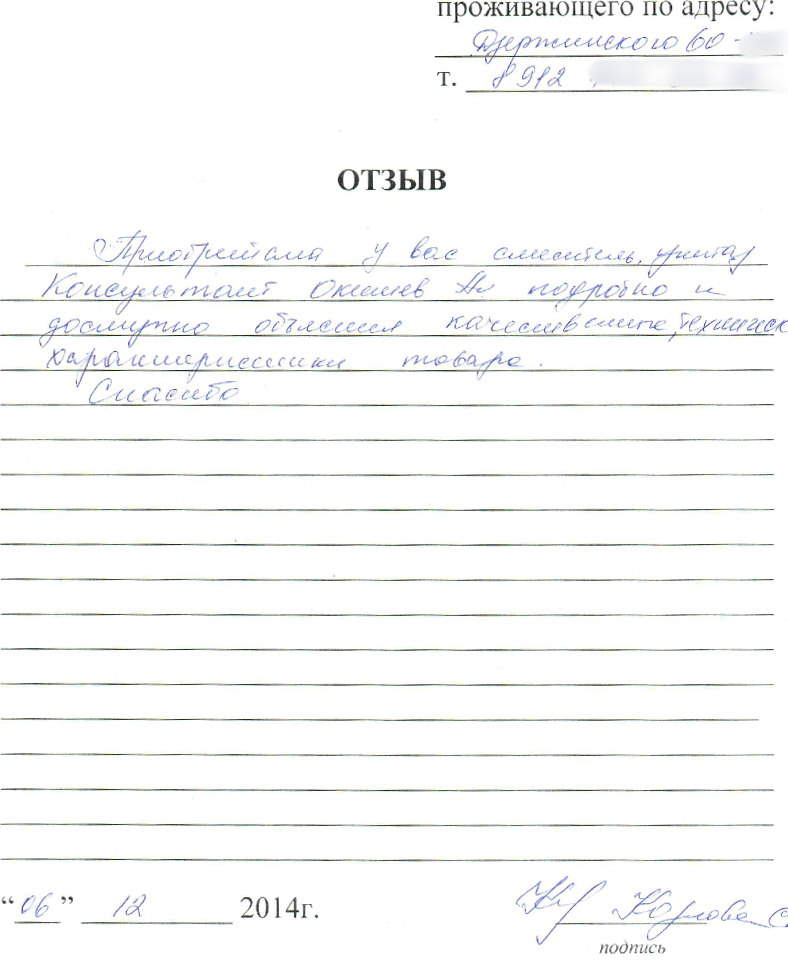 проживающего по адресу:
Дзержинского 60 -
т. 8 912
ОТЗЫВ
Приобрели у вас смеситель, унитаз
Консультант подробно и
доступно объяснил качественные, техническ
характеристики товара.
Спасибо
“06” 12 2014г.
подпись